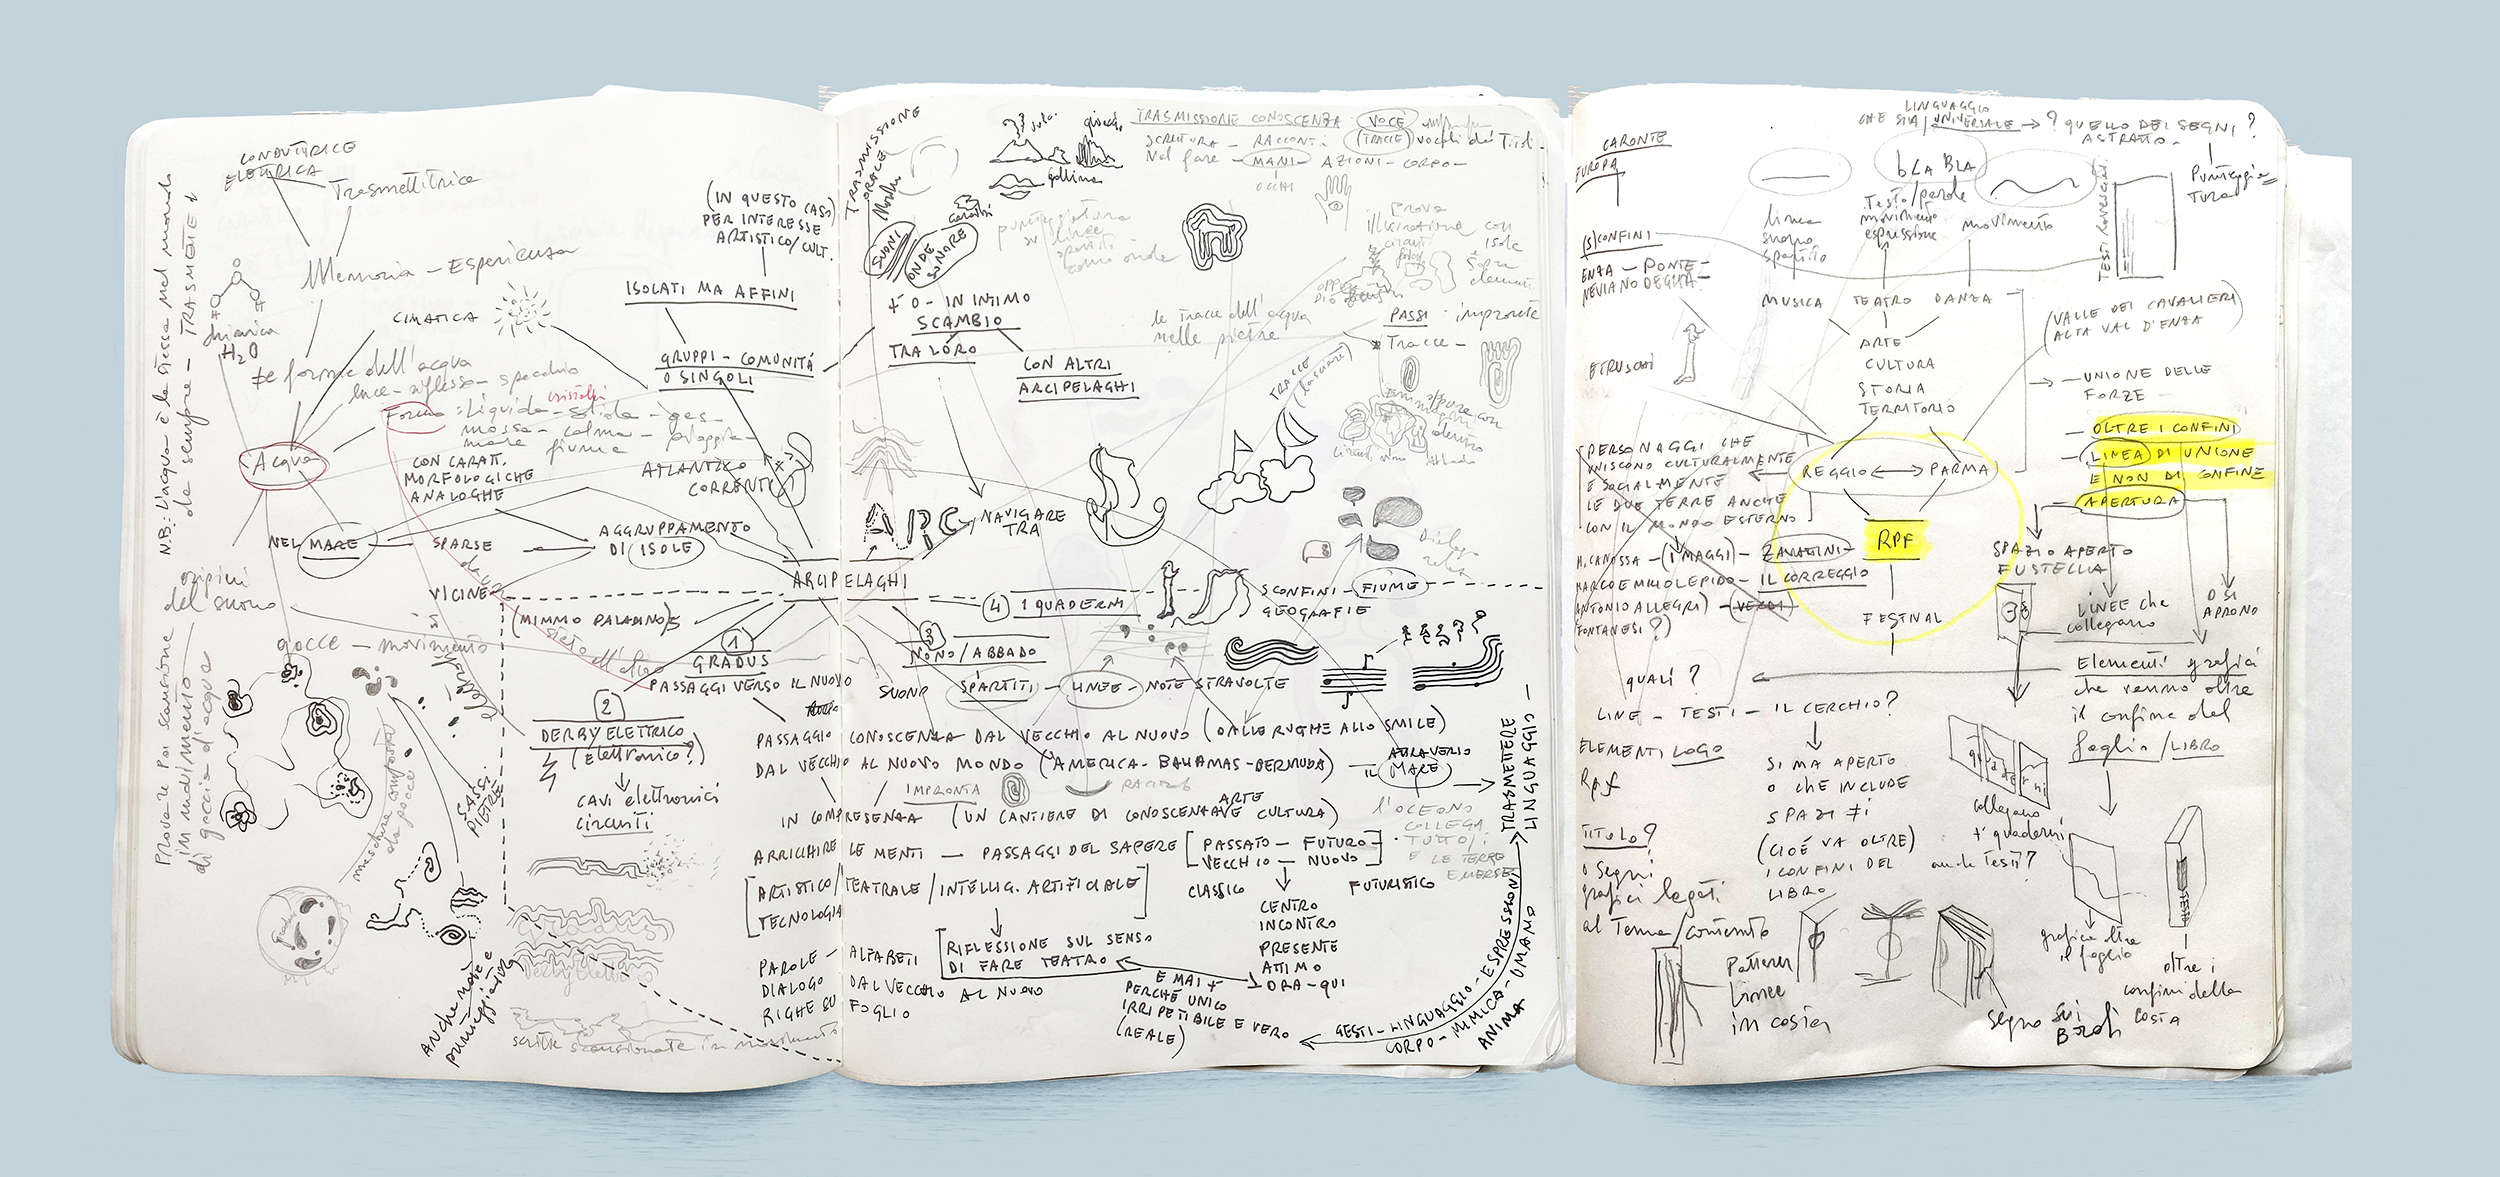 CONDUTTRICE
ELETTRICA
Trasmettitrice
NB: L'acqua è la stessa nel mondo
da sempre - TRASMETTE
Memoria - Esperienza
CIMATICA
chimica
H₂O
le forme dell'acqua
luce - riflesso - specchio
Forma: Liquida - solida - gas -
cristalli
mossa - calma - pioggia -
mare fiume
Acqua
CON CARATT.
MORFOLOGICHE
ANALOGHE
NEL MARE
SPARSE
VICINE
AGGRUPPAMENTO
DI ISOLE
ATLANTICO
CORRENTI
(IN QUESTO CASO)
PER INTERESSE
ARTISTICO/CULT.
ISOLATI MA AFFINI
GRUPPI - COMUNITÁ
O SINGOLI
origini
del suono
gocce - movimento
Provare poi scansione
in movimento
di goccia d'acqua
SASSI
PIETRE
ANCHE note e
punteggiatura
(MIMMO PALADINO)
1
GRADUS
PASSAGGI VERSO IL NUOVO
2
DERBY ELETTRICO
(elettronico?)
CAVI elettronici
circuiti
scritte scansionate in movimento
TRASMISSIONE
ORALE
SUONI
ONDE
SONORE
+ O - IN INTIMO
SCAMBIO
TRA LORO
CON ALTRI
ARCIPELAGHI
TRASMISSIONE CONOSCENZA VOCE
SCRITTURA - RACCONTI (TRACCE)
Nel fare - MANI - AZIONI - CORPO -
OCCHI
punteggiatura
su linee
spartito
come onde
prova
illustrazione con
isole
le tracce dell'acqua
nelle pietre
PASSI - impronte
Tracce -
TRACCE
(lasciare)
ARC
NAVIGARE
TRA
ARCIPELAGHI
4 I QUADERNI
SCONFINI - FIUME
GEOGRAFIE
3
NONO/ABBADO
SUONO SPARTITI - LINEE - NOTE STRAVOLTE
PASSAGGIO CONOSCENZA DAL VECCHIO AL NUOVO (DALLE RUGHE ALLO SMILE)
DAL VECCHIO AL NUOVO MONDO (AMERICA - BAHAMAS - BERMUDA) - ATTRAVERSO
IL MARE
IMPRONTA
IN COMPRESENZA (UN CANTIERE DI CONOSCENZA VE CULTURA)
ARTE
l'OCEANO
COLLEGA
TUTTO/I
E LE TERRE
EMERSE
ARRICCHIRE LE MENTI - PASSAGGI DEL SAPERE [PASSATO - FUTURO
VECCHIO - NUOVO]
CLASSICO FUTURISTICO
[ARTISTICO/TEATRALE/INTELLIG. ARTIFICIALE]
TECNOLOGIA
CENTRO
INCONTRO
PRESENTE
ATTIMO
ORA - QUI
RIFLESSIONE SUL SENSO
DI FARE TEATRO
PAROLE - ALFABETI
DIALOGO DAL VECCHIO AL NUOVO
RIGHE SU FOGLIO
E MAI +
PERCHÉ UNICO
IRRIPETIBILE E VERO
(REALE)
GESTI - LINGUAGGIO - ESPRESSIONI
CORPO - MIMICA - UMANO
ANIMA
TRASMETTERE
LINGUAGGIO
CARONTE
EUROPA
LINGUAGGIO
CHE SIA UNIVERSALE → ? QUELLO DEI SEGNI ?
ASTRATTO -
bLA BLA
Testo/parole
movimento
espressione
linea
suono
spartito
movimento
TESTI rovesciati
Punteggia=
tura
(S)CONFINI
ENZA - PONTE -
NEVIANO DEGLI A.
MUSICA TEATRO DANZA
(VALLE DEI CAVALIERI)
ALTA VAL D'ENZA
ETRUSCHI
ARTE
CULTURA
STORIA
TERRITORIO
→ - UNIONE DELLE
FORZE -
- OLTRE I CONFINI
- LINEA DI UNIONE
E NON DI CONFINE
APERTURA
PERSONAGGI CHE
UNISCONO CULTURALMENTE
E SOCIALMENTE
LE DUE TERRE ANCHE
CON IL MONDO ESTERNO
REGGIO ↔ PARMA
RPF
FESTIVAL
M. CANOSSA - (I MAGGI) - ZAVATTINI -
MARCO EMILIO LEPIDO - IL CORREGGIO
(ANTONIO ALLEGRI) - VERDI
(FONTANESI?)
SPAZIO APERTO
FUSTELLA
LINEE che
collegano
O SI
APRONO
QUALI?
LINE - TESTI - IL CERCHIO?
ELEMENTI LOGO
Rpf
SI MA APERTO
O CHE INCLUDE
SPAZI ≠i
(CIOÉ VA OLTRE)
I CONFINI DEL
LIBRO
Elementi grafici
che vanno oltre
il confine del
foglio/LIBRO
quaderni
collegano
+ quaderni
anche TESTI?
TITOLO?
o segni
grafici legati
al Tema/contenuto
Pattern
Linee
in costa
segno SUI
BORDI
grafica oltre
il foglio
oltre i
confini della
COSTA